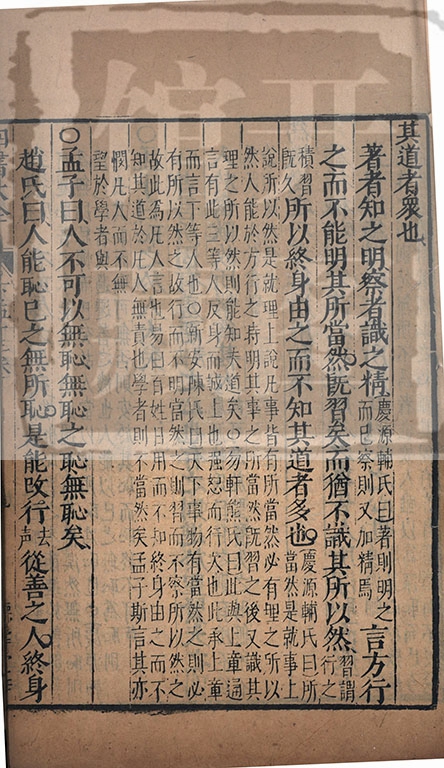 其道者衆也
著者知之明察者識之精慶源輔氏曰著則明之而已察則又加精焉言方行
之而不能明其所當然既習矣而猶不識其所以然習謂行之
積習既久所以終身由之而不知其道者多也慶源輔氏曰所當然是就事上
說所以然是就理上說凡事皆有所當然必有理之所以
然人能於方行之時明其事之所當然既習之後又識其
理之所以然則能知夫道矣○勿軒熊氏曰此與上章通
言有此三等人反身而誠上也強恕而行次也此承上章
而言下等人也○新安陳氏曰天下事物有當然之則必
有所以然之故行而不明當然之則習而不察所以然之
故此為凡人言也易曰百姓日用而不知終身由之而不
知其道於凡人無責也學者則不當然矣孟子斯言其亦
憫凡人而不無
望於學者與
○孟子曰人不可以無恥無恥之恥無恥矣
趙氏曰人能恥己之無所恥是能改行去聲從善之人終身